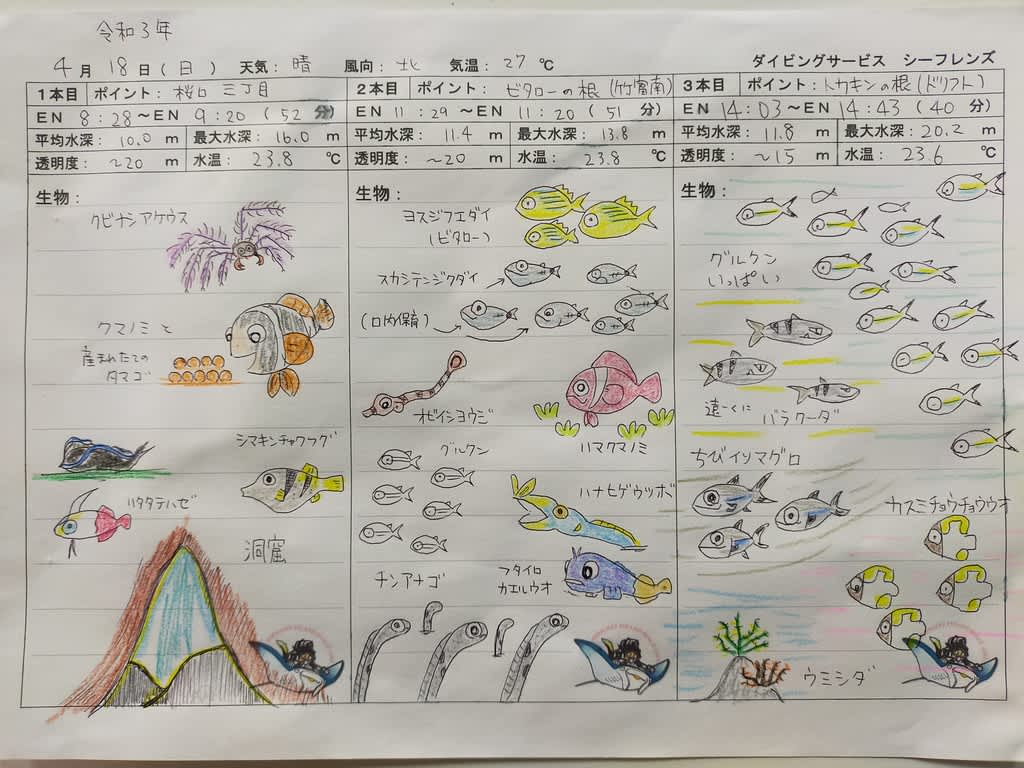 令和3年
4月 18日(日) 天気: 晴 風向: 北 気温: 27℃ ダイビングサービス シーフレンズ
1本目 ポイント: 桜口 三丁目
EN 8:28~EN 9:20 (52分)
平均水深: 10.0 m 最大水深: 16.0 m
透明度: ~20 m 水温: 23.8 ℃
生物:
クビナシアケウス
クマノミと
産まれたての
タマゴ
シマキンチャクフグ
ハタタテハゼ
洞窟
2本目 ポイント: ビタローの根(竹富南)
EN 11:29~EN 11:20 (51分)
平均水深: 11.4 m 最大水深: 13.8 m
透明度: ~20 m 水温: 23.8 ℃
生物:
ヨスジフエダイ
(ビタロー)
スカシテンジクダイ
(口内保育)
オビイシヨウジ
ハマクマノミ
グルクン
ハナヒゲウツボ
チンアナゴ
フタイロ
カエルウオ
3本目 ポイント: トカキンの根(ドリフト)
EN 14:03~EN 14:43 (40分)
平均水深: 11.8 m 最大水深: 20.2 m
透明度: ~15 m 水温: 23.6 ℃
生物:
グルケン
いっぱい
遠ーくに
バラクーダ
ちびイソマグロ
カスミチョウチョウウオ
ウミシダ